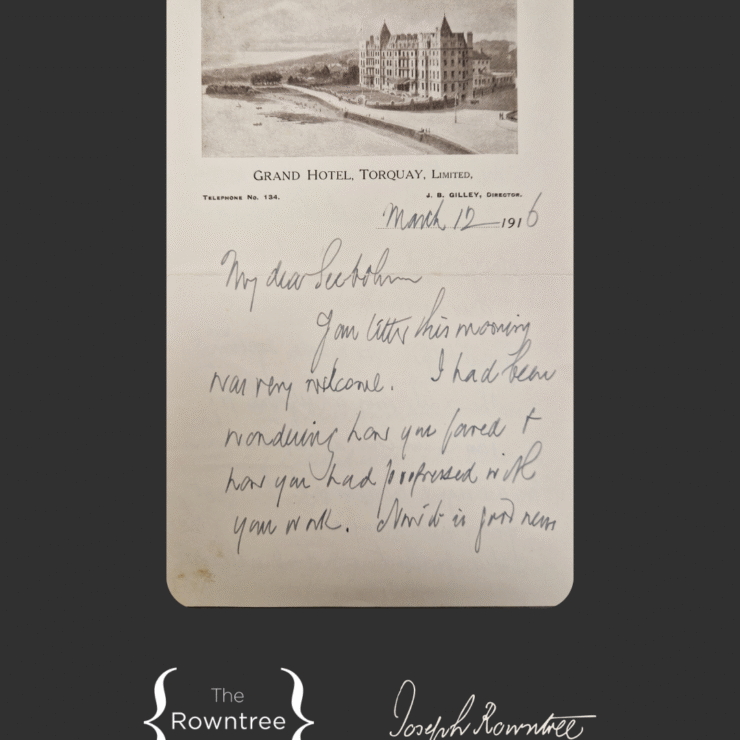 GRAND HOTEL, TORQUAY, LIMITED,
TELEPHONE No. 134.
J. B. GILLEY, DIRECTOR.
March 12 1916
My dear Seebohm
Your letter this morning
was very welcome. I had been
wondering how you fared &
how you had progressed with
your work. Now it is good news
The
Rowntree
Joseph Rowntree